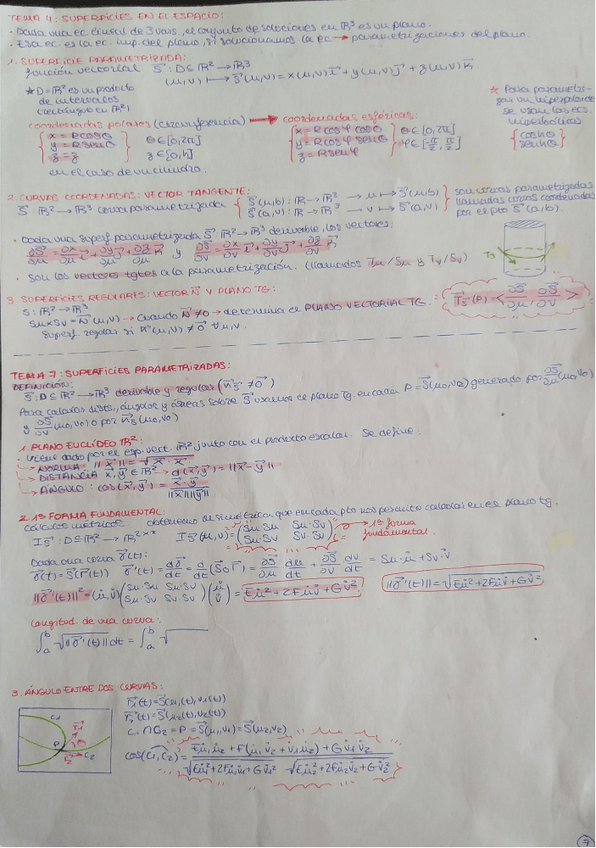 TEMA 4: SUPERFICIES EN EL ESPACIO:
· Dada una ec lineal de 3 vars, el conjunto de soluciones en ℝ³ es un plano.
· Esa ec es la ec. imp. del plano, si solucionamos la ec → parametrizaciones del plano.
1. SUPERFICIE PARAMETRIZADA:
función vectorial S⃗: D⊆ℝ² → ℝ³
(u,v) ↦ S⃗(u,v) = x(u,v) i⃗ + y(u,v) j⃗ + z(u,v) k⃗.
* D=ℝ² es un producto
de intervalos
(rectángulo en ℝ²)
* Para parametri-
zar un hiperboloide
se usan las ecs
hiperbólicas
{ coshθ
senhθ }
coordenadas polares (circunferencia) → coordenadas esféricas:
{ x = R cosθ
y = R senθ
z = z }
θ∈[0,2π]
z∈[0,h]
{ x = R cosφ cosθ
y = R cosφ senθ
z = R senφ }
θ∈[0,2π]
φ∈[-π/2, π/2]
en el caso de un cilindro.
2. CURVAS COORDENADAS: VECTOR TANGENTE:
S⃗: ℝ² → ℝ³ curva parametrizada { S⃗(u,b): ℝ → ℝ³ → u ↦ S⃗(u,b)
S⃗(a,v): ℝ → ℝ³ → v ↦ S⃗(a,v) }
son curvas parametrizadas
llamadas curvas coordenadas
por el pto S⃗(a,b).
· Dada una superf. parametrizada S⃗: ℝ² → ℝ³ derivable, los vectores:
∂S⃗/∂u = ∂x/∂u i⃗ + ∂y/∂u j⃗ + ∂z/∂u k⃗ y ∂S⃗/∂v = ∂x/∂v i⃗ + ∂y/∂v j⃗ + ∂z/∂v k⃗
· Son los vectores tgtes a la parametrización. (llamados Tu/Su y Tv/Sv)
3. SUPERFICIES REGULARES: VECTOR N⃗ Y PLANO TG:
S: ℝ² → ℝ³
Su×Sv = N⃗(u,v) → cuando N⃗ ≠ 0 → determina el PLANO VECTORIAL TG.
T_S⃗(P) = < ∂S⃗/∂u, ∂S⃗/∂v >
Superf. regular si N⃗(u,v) ≠ 0⃗ ∀u,v.
TEMA 7: SUPERFICIES PARAMETRIZADAS:
DEFINICIÓN:
S⃗: D⊆ℝ² → ℝ³ derivable y regular (n⃗s ≠ 0⃗)
Para calcular dists, ángulos y áreas sobre S⃗ usamos el plano tg. en cada P = S⃗(u₀,v₀) generado por ∂S⃗/∂u(u₀,v₀)
y ∂S⃗/∂v(u₀,v₀) o por n⃗s(u₀,v₀)
1. PLANO EUCLÍDEO ℝ²:
· Viene dado por el esp. vect. ℝ² junto con el producto escalar. Se define:
→ NORMA: ||x⃗|| = √(x⃗·x⃗)
→ DISTANCIA x⃗,y⃗ ∈ ℝ² → d(x⃗,y⃗) = ||x⃗-y⃗||
→ ÁNGULO: cos(x⃗,y⃗) = x⃗·y⃗ / ||x⃗|| ||y⃗||
2. 1ª FORMA FUNDAMENTAL:
Cálculos métricos: que en cada pto nos permite calcular en el plano tg.
I_S⃗: D⊆ℝ² → ℝ²ˣ² I_S⃗(u,v) = (Su·Su Su·Sv
Su·Sv Sv·Sv) → 1ª forma
fundamental.
Dada una curva σ⃗(t):
σ⃗(t) = S⃗(r⃗(t)) σ⃗'(t) = dσ⃗/dt = d/dt (S⃗∘r⃗) = ∂S⃗/∂u du/dt + ∂S⃗/∂v dv/dt = Su·u̇ + Sv·v̇
||σ⃗'(t)||² = (u̇,v̇) (Su·Su Su·Sv
Su·Sv Sv·Sv) (u̇
v̇) = Eu̇² + 2Fu̇v̇ + Gv̇²
||σ⃗'(t)|| = √(Eu̇² + 2Fu̇v̇ + Gv̇²)
Longitud de una curva:
∫ₐᵇ √||σ⃗'(t)|| dt = ∫ₐᵇ √
3. ÁNGULO ENTRE DOS CURVAS:
r₁(t) = S⃗(u₁(t),v₁(t))
r₂(t) = S⃗(u₂(t),v₂(t))
C₁∩C₂ = P = S⃗(u₁,v₁) = S⃗(u₂,v₂)
cos(C₁,C₂) = (Eu̇₁u̇₂ + F(u̇₁v̇₂ + v̇₁u̇₂) + Gv̇₁v̇₂) / (√(Eu̇₁² + 2Fu̇₁v̇₁ + Gv̇₁²) √(Eu̇₂² + 2Fu̇₂v̇₂ + Gv̇₂²))
C₁
P
C₂